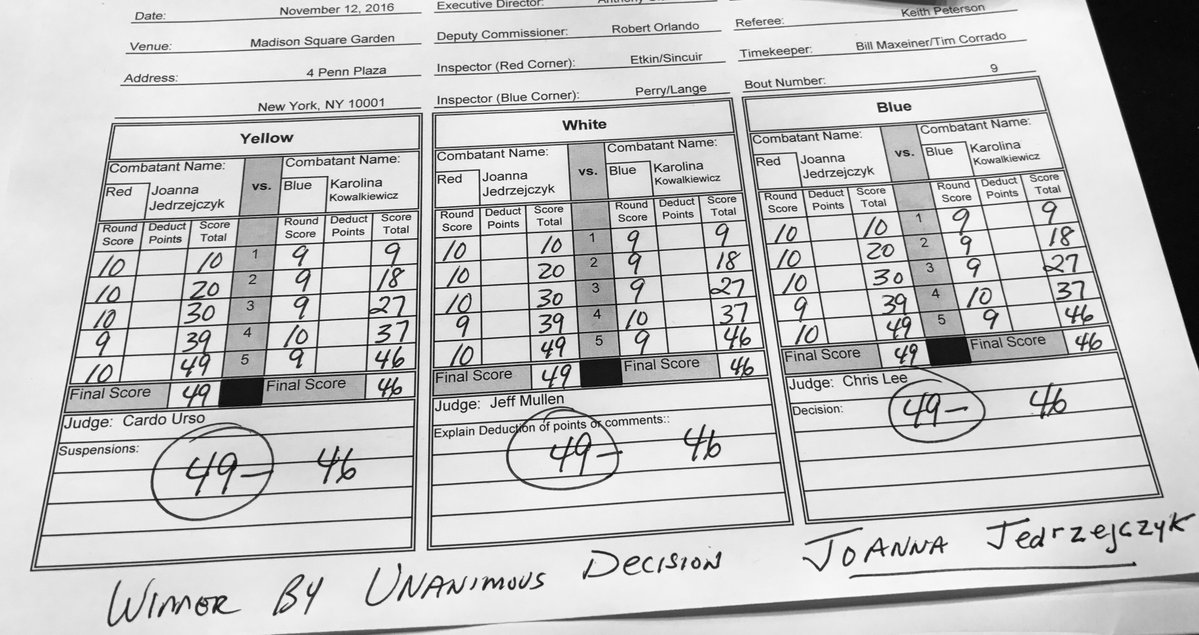 Date: November 12, 2016
Venue: Madison Square Garden
Address: 4 Penn Plaza
New York, NY 10001
Executive Director:
Deputy Commissioner: Robert Orlando
Inspector (Red Corner): Etkin/Sincuir
Inspector (Blue Corner): Perry/Lange
Referee: Keith Peterson
Timekeeper: Bill Maxeiner/Tim Corrado
Bout Number: 9
Yellow
Combatant Name: vs. Combatant Name:
Red Joanna Jedrzejczyk Blue Karolina Kowalkiewicz
Round Score Deduct Points Score Total Round Score Deduct Points Score Total
10 10 1 9 9
10 20 2 9 18
10 30 3 9 27
9 39 4 10 37
10 49 5 9 46
Final Score 49 Final Score 46
Judge: Cardo Urso
Suspensions:
49- 46
White
Combatant Name: vs. Combatant Name:
Red Joanna Jedrzejczyk Blue Karolina Kowalkiewicz
Round Score Deduct Points Score Total Round Score Deduct Points Score Total
10 10 1 9 9
10 20 2 9 18
10 30 3 9 27
9 39 4 10 37
10 49 5 9 46
Final Score 49 Final Score 46
Judge: Jeff Mullen
Explain Deduction of points or comments::
49- 46
Blue
Combatant Name: vs. Combatant Name:
Red Joanna Jedrzejczyk Blue Karolina Kowalkiewicz
Round Score Deduct Points Score Total Round Score Deduct Points Score Total
10 10 1 9 9
10 20 2 9 18
10 30 3 9 27
9 39 4 10 37
10 49 5 9 46
Final Score 49 Final Score 46
Judge: Chris Lee
Decision:
49- 46
WINNER BY UNANIMOUS DECISION JOANNA Jedrzejczyk